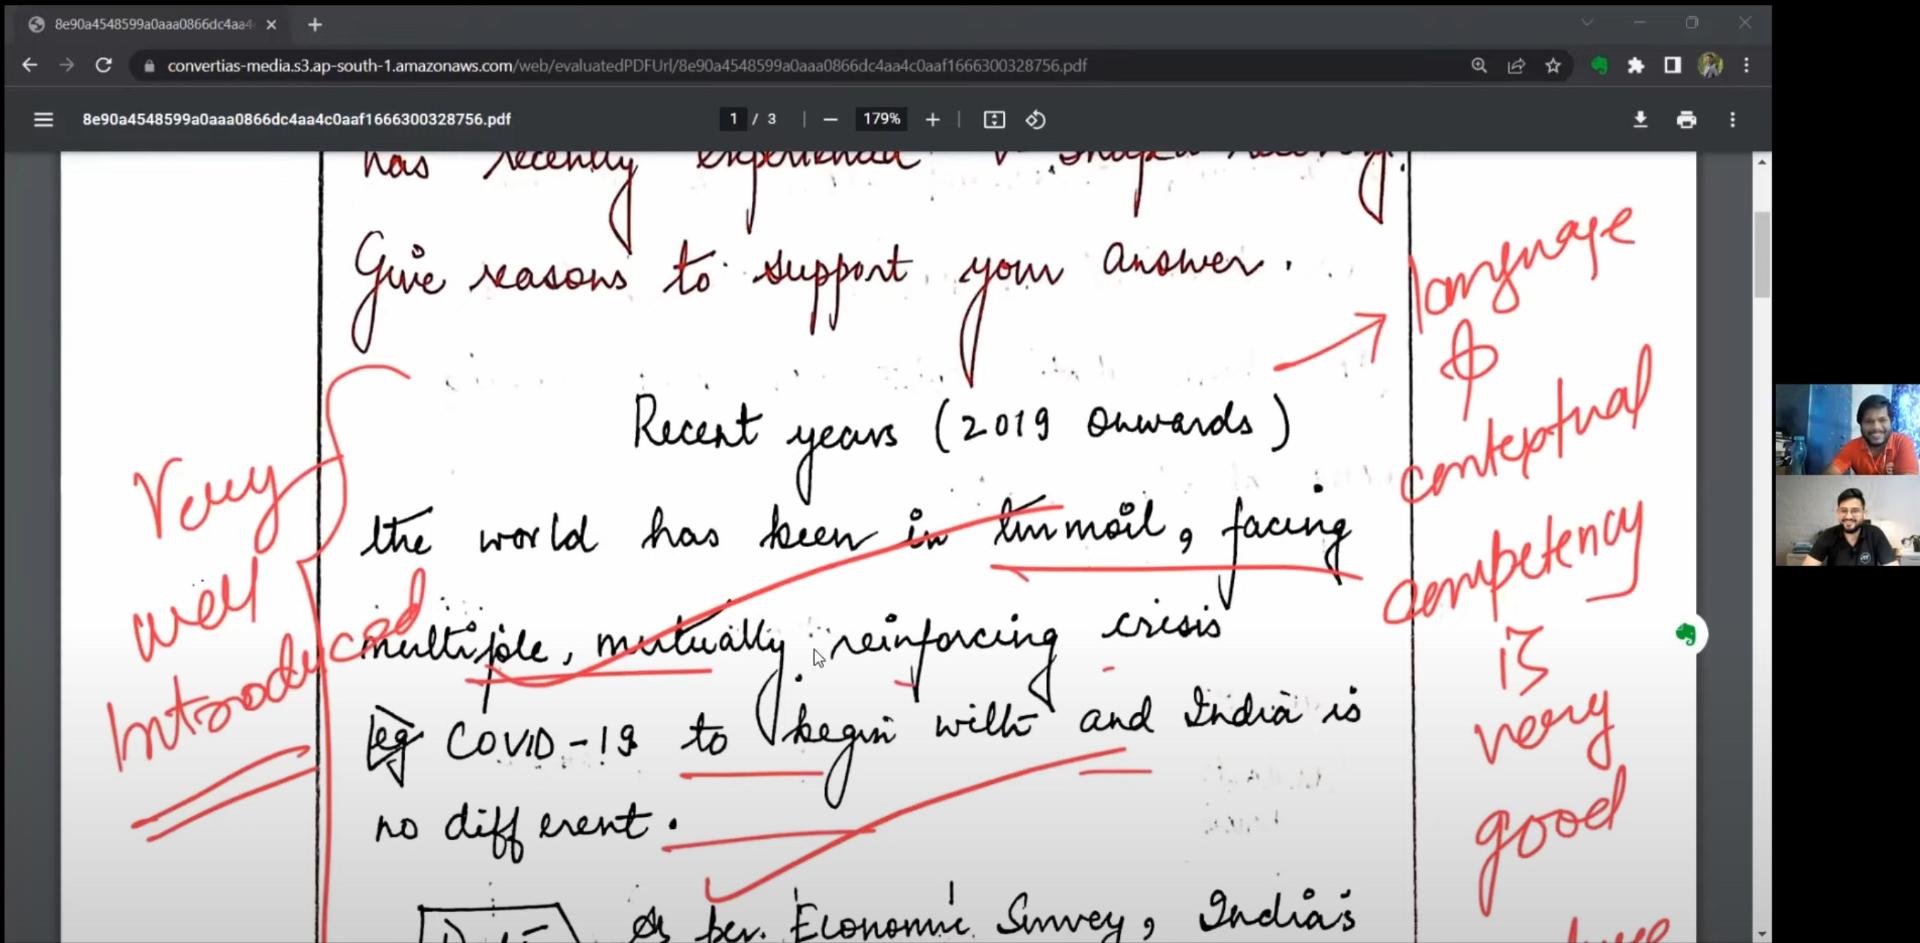 8e90a4548599a0aaa0866dc4aa4
convertias-media.s3.ap-south-1.amazonaws.com/web/evaluatedPDFUrl/8e90a4548599a0aaa0866dc4aa4c0aaf1666300328756.pdf
8e90a4548599a0aaa0866dc4aa4c0aaf1666300328756.pdf
1 / 3
179%
has recently experienced V-shaped recovery.
Give reasons to support your answer.
Recent years (2019 onwards)
the world has been in turmoil, facing
multiple, mutually reinforcing crisis
eg COVID-19 to begin with and India is
no different.
As per 'Economic Survey, India's
Very
well
Introduced
language
&
contextual
competency
is
very
good